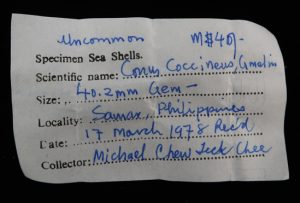 Uncommon M$40/-
Specimen Sea Shells.
Scientific name: Conus Coccineus, Gmelin
Size: 40.2mm Gem -
Locality: Samar, Philippines
Date: 17 March 1978 Rec'd
Collector: Michael Chew Teck Chee